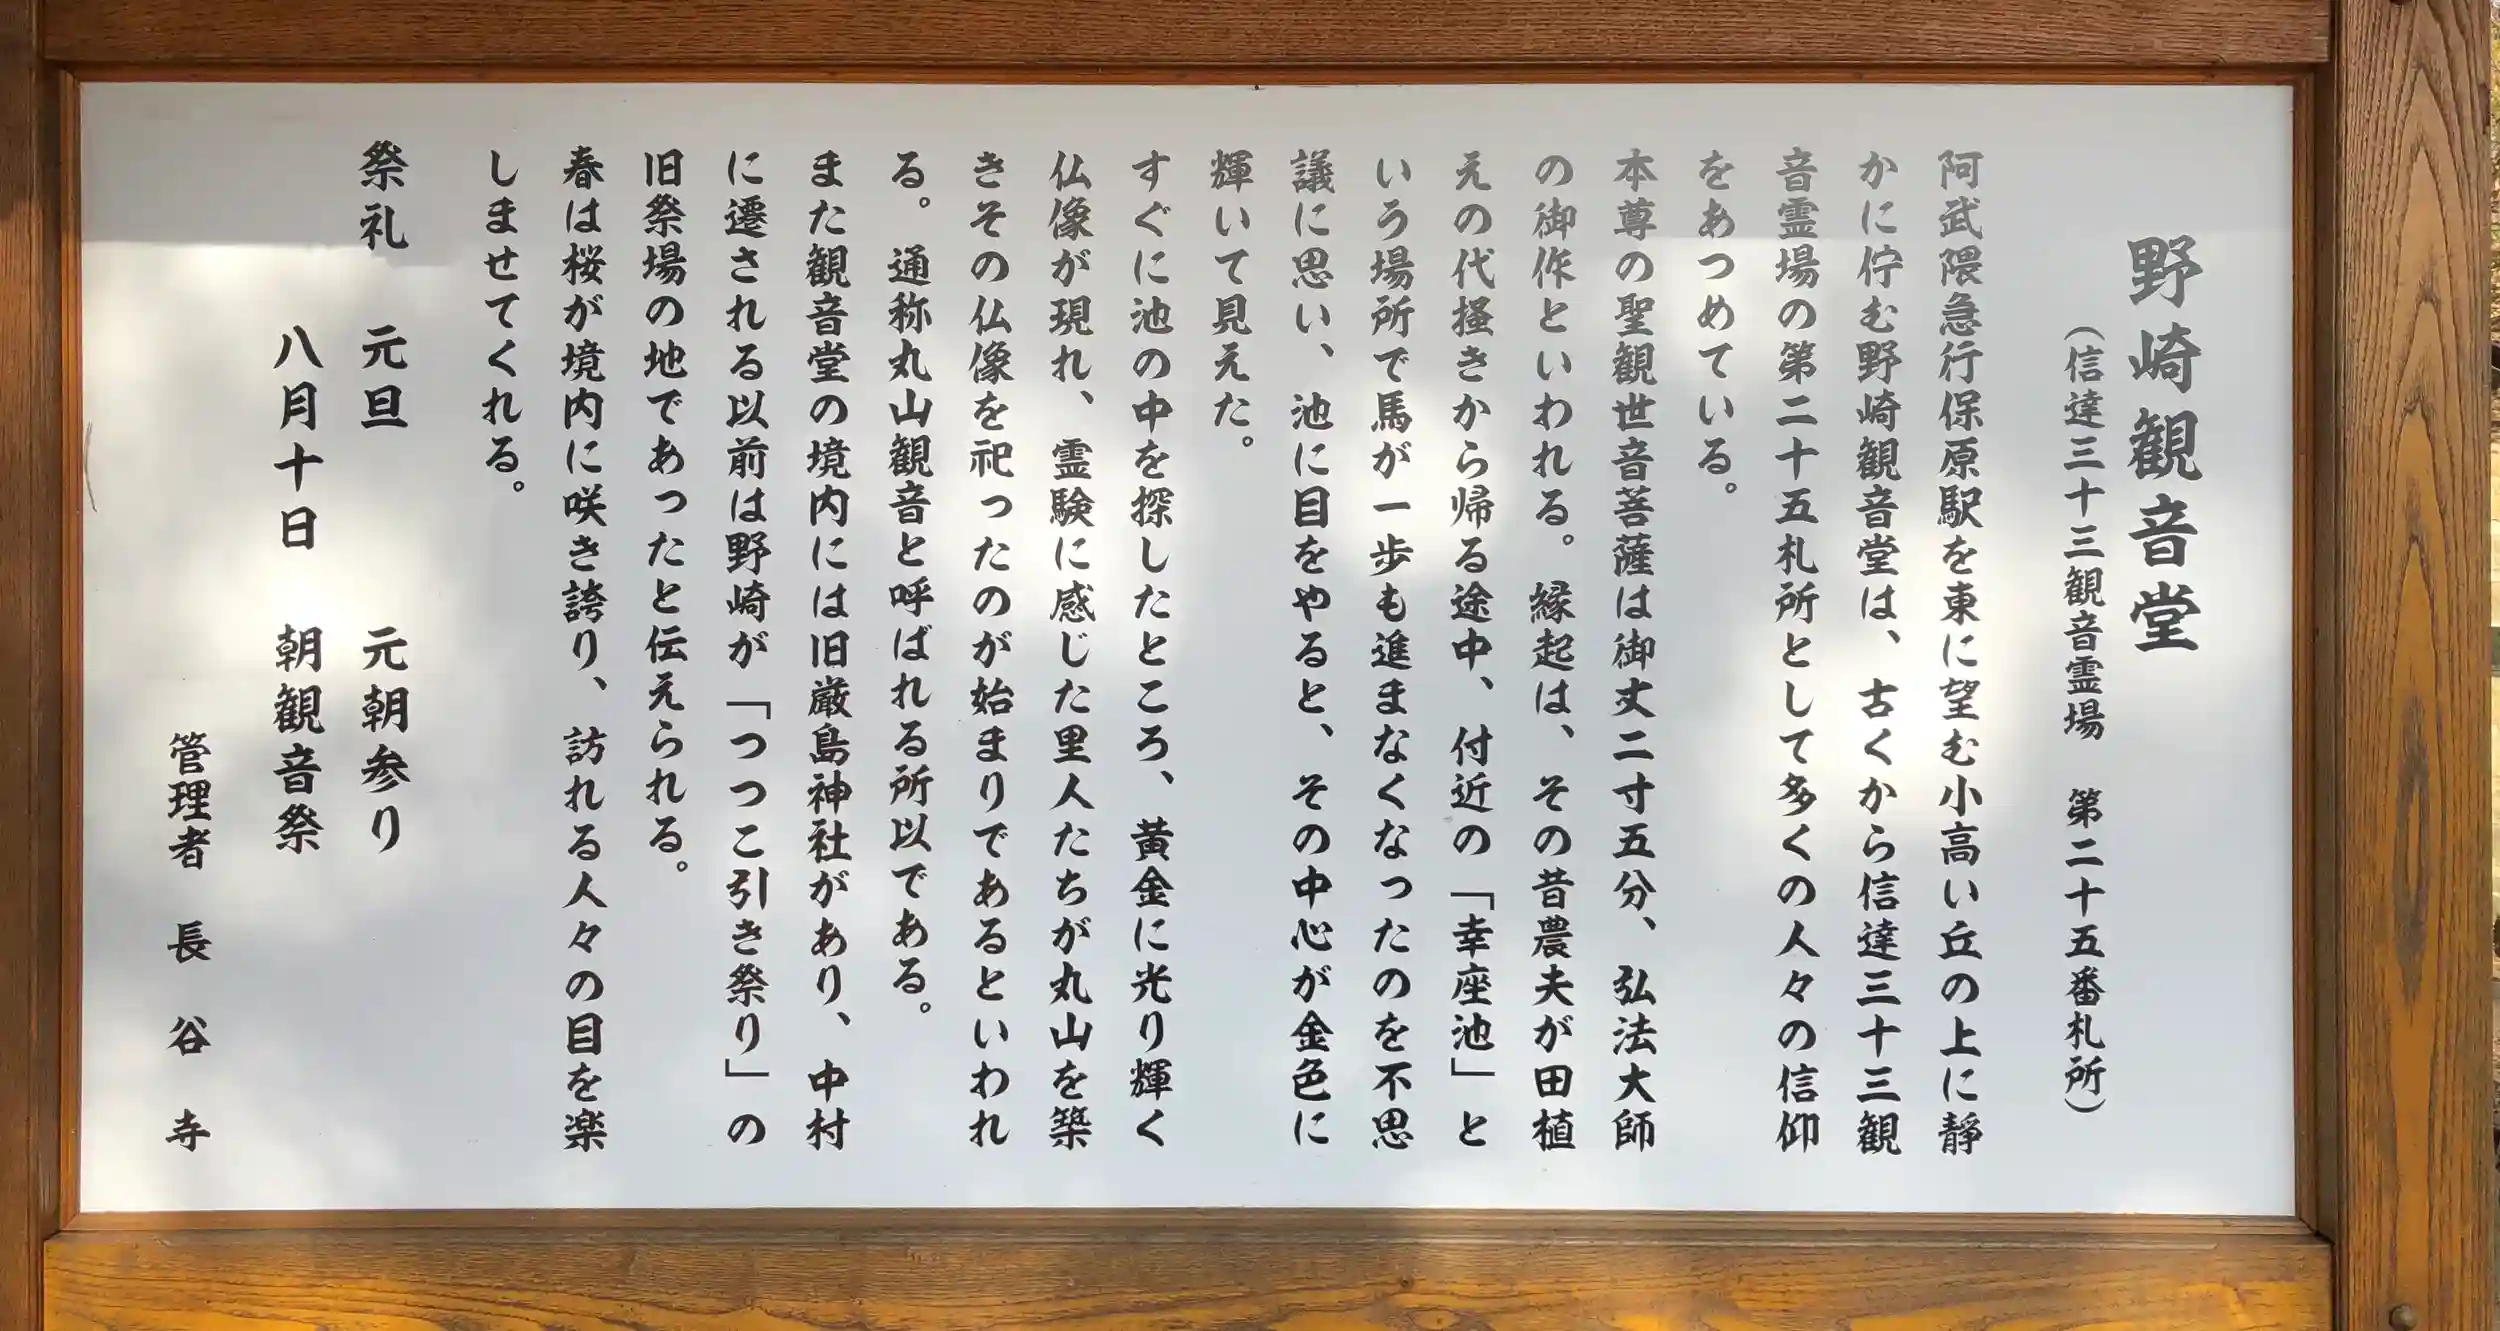 野崎観音堂
（信達三十三観音霊場　第二十五番札所）
阿武隈急行保原駅を東に望む小高い丘の上に静
かに佇む野崎観音堂は、古くから信達三十三観
音霊場の第二十五札所として多くの人々の信仰
をあつめている。
本尊の聖観世音菩薩は御丈二寸五分、弘法大師
の御作といわれる。縁起は、その昔農夫が田植
えの代掻きから帰る途中、付近の「幸座池」と
いう場所で馬が一歩も進まなくなったのを不思
議に思い、池に目をやると、その中心が金色に
輝いて見えた。
すぐに池の中を探したところ、黄金に光り輝く
仏像が現れ、霊験に感じた里人たちが丸山を築
きその仏像を祀ったのが始まりであるといわれ
る。通称丸山観音と呼ばれる所以である。
また観音堂の境内には旧厳島神社があり、中村
に遷される以前は野崎が「つつこ引き祭り」の
旧祭場の地であったと伝えられる。
春は桜が境内に咲き誇り、訪れる人々の目を楽
しませてくれる。
祭礼　元旦　元朝参り
八月十日　朝観音祭
管理者　長　谷　寺